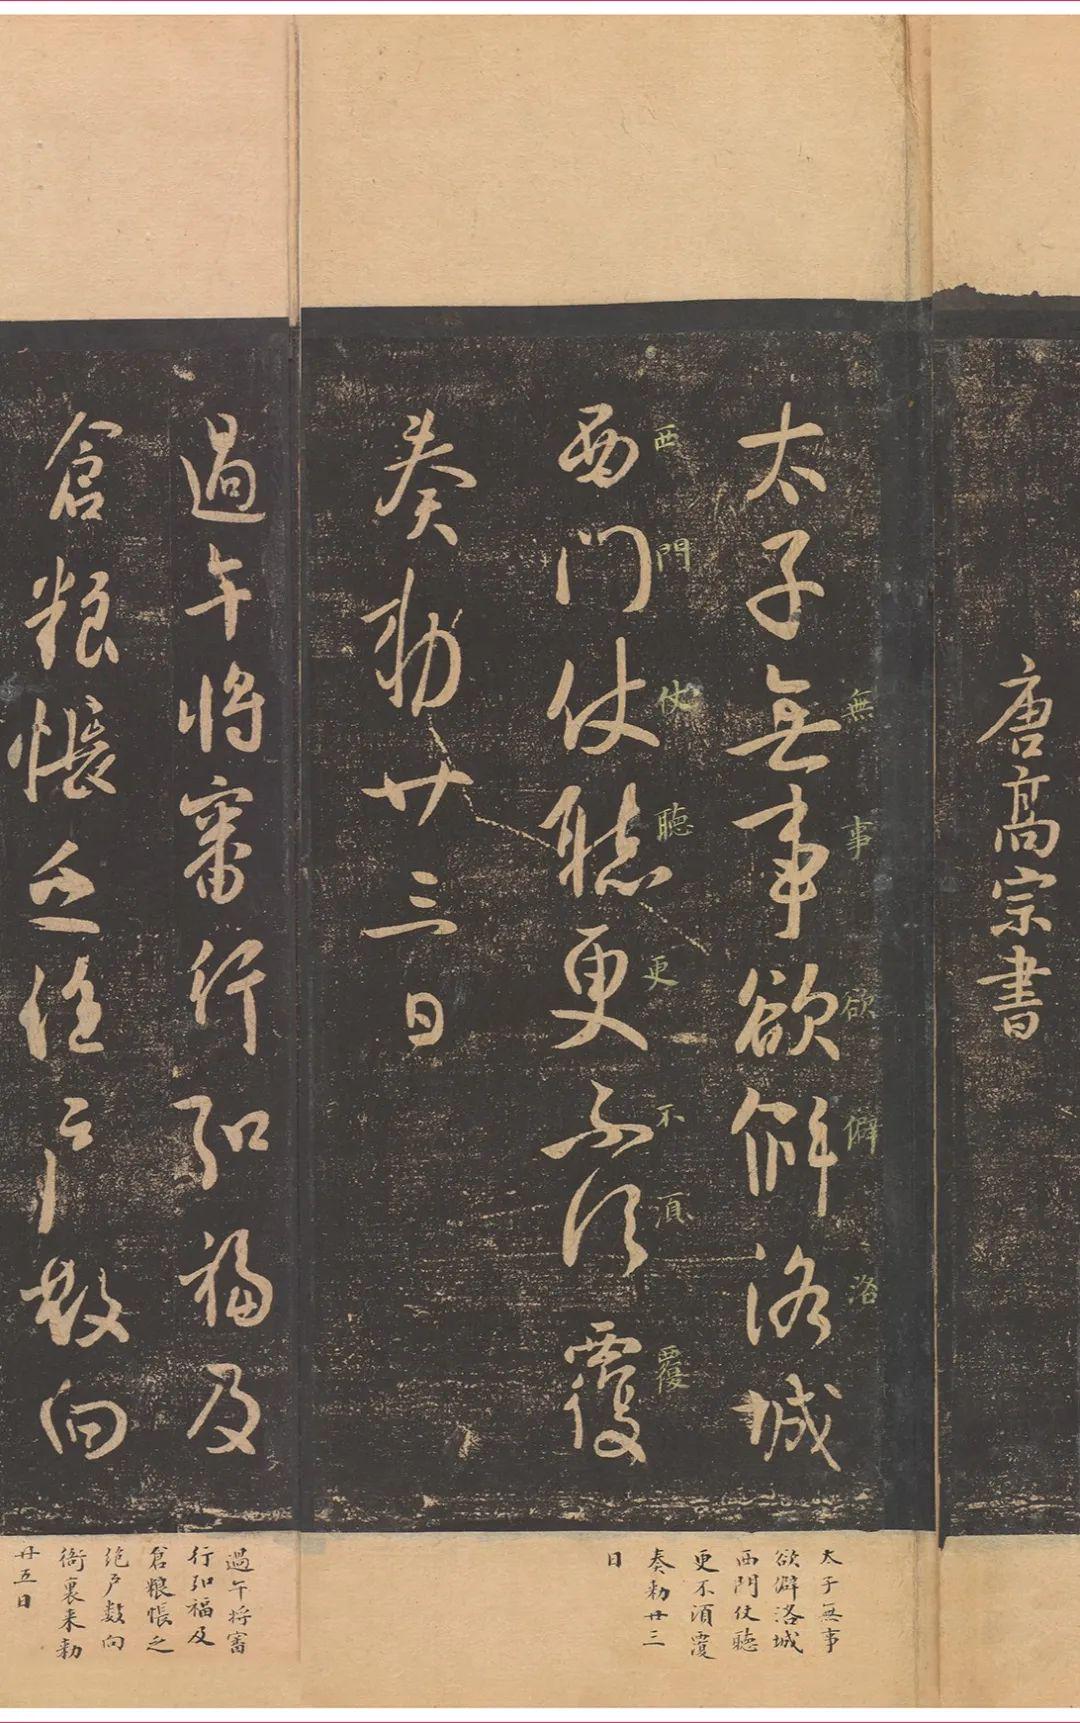 唐高宗書
太子無事欲僻洛城
無事欲僻洛
西門仗聽更不須覆
西門仗聽更不須覆
奏勅廿三日
過午將審行弘福及
倉粮帳之絶戸數向
太子無事
欲僻洛城
西門仗聽
更不須覆
奏勅廿三
日
過午将審
行弘福及
倉粮帳之
絶戸数向
衙裏来勅
廿五日